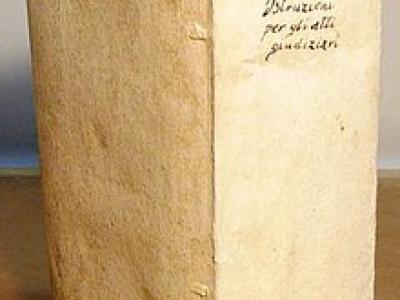 Istruzioni
per gli atti
giudiziari